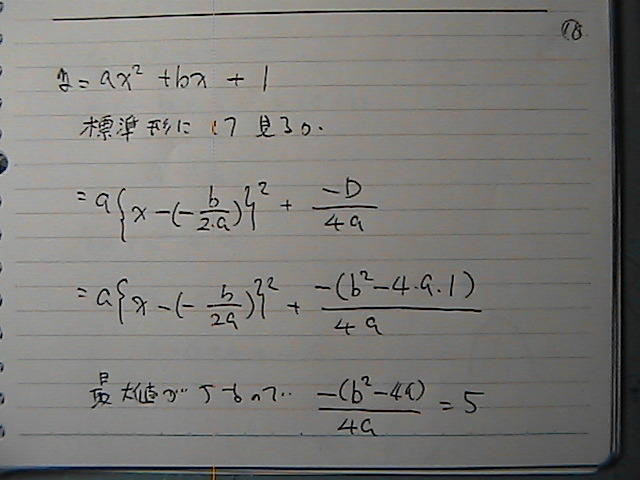 ⑱
y = ax² + bx + 1
標準形に して 見る。
= a{x - (-b/2a)}² + -D/4a
= a{x - (-b/2a)}² + -(b² - 4・a・1)/4a
最大値が 5なので -(b² - 4a)/4a = 5